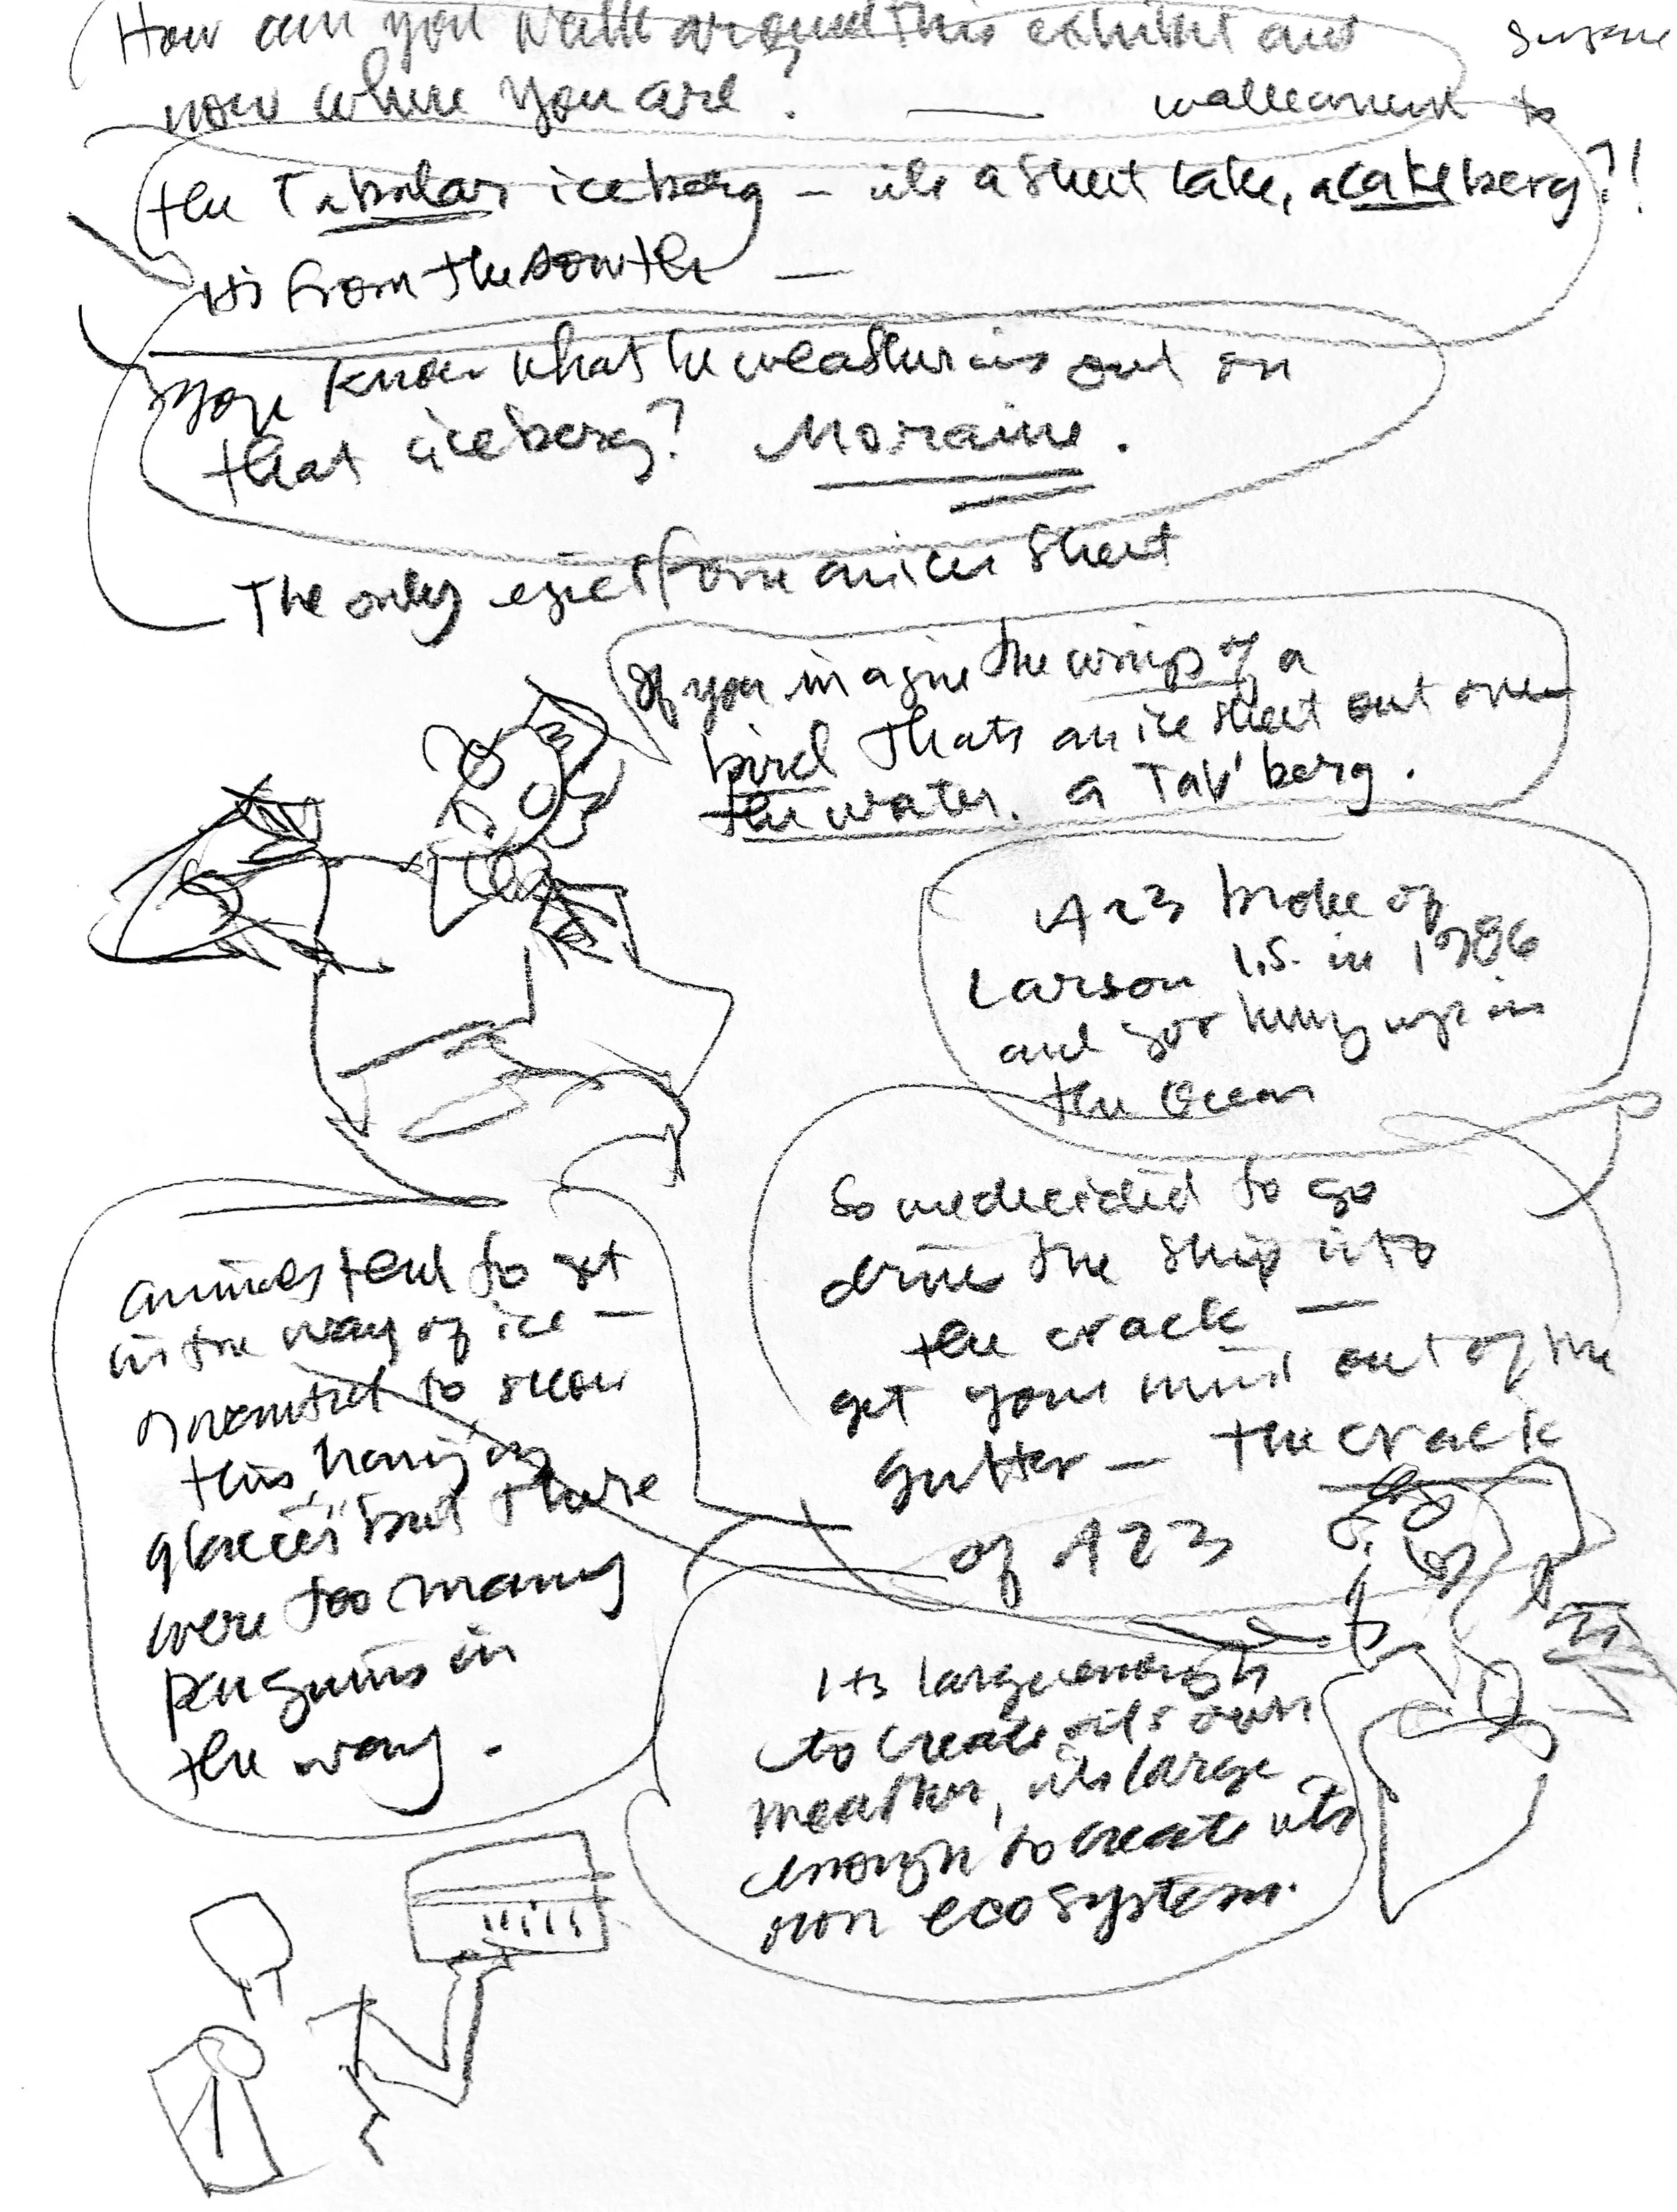 How can you walk around this exhibit and
now where you are? —
to
the Tabular iceberg — its a sheet cake, a cake berg?!
its from the south —
you know what the weather is out on
that iceberg? Moraine.
The only form an ice sheet
If you imagine the wings of a
bird thats an ice sheet out over
the water. a Tab' berg.
A23 broke of
Larson I.S. in 1986
and got hung up in
the Ocean
So we decided to go
drive the ship into
the crack —
get your mind out of the
gutter — the crack
of A23
animals tend to get
in the way of ice —
I wanted to show
this hanging
glacier but there
were too many
penguins in
the way.
Its large enough
to create its own
weather, its large
enough to create its
own ecosystem.